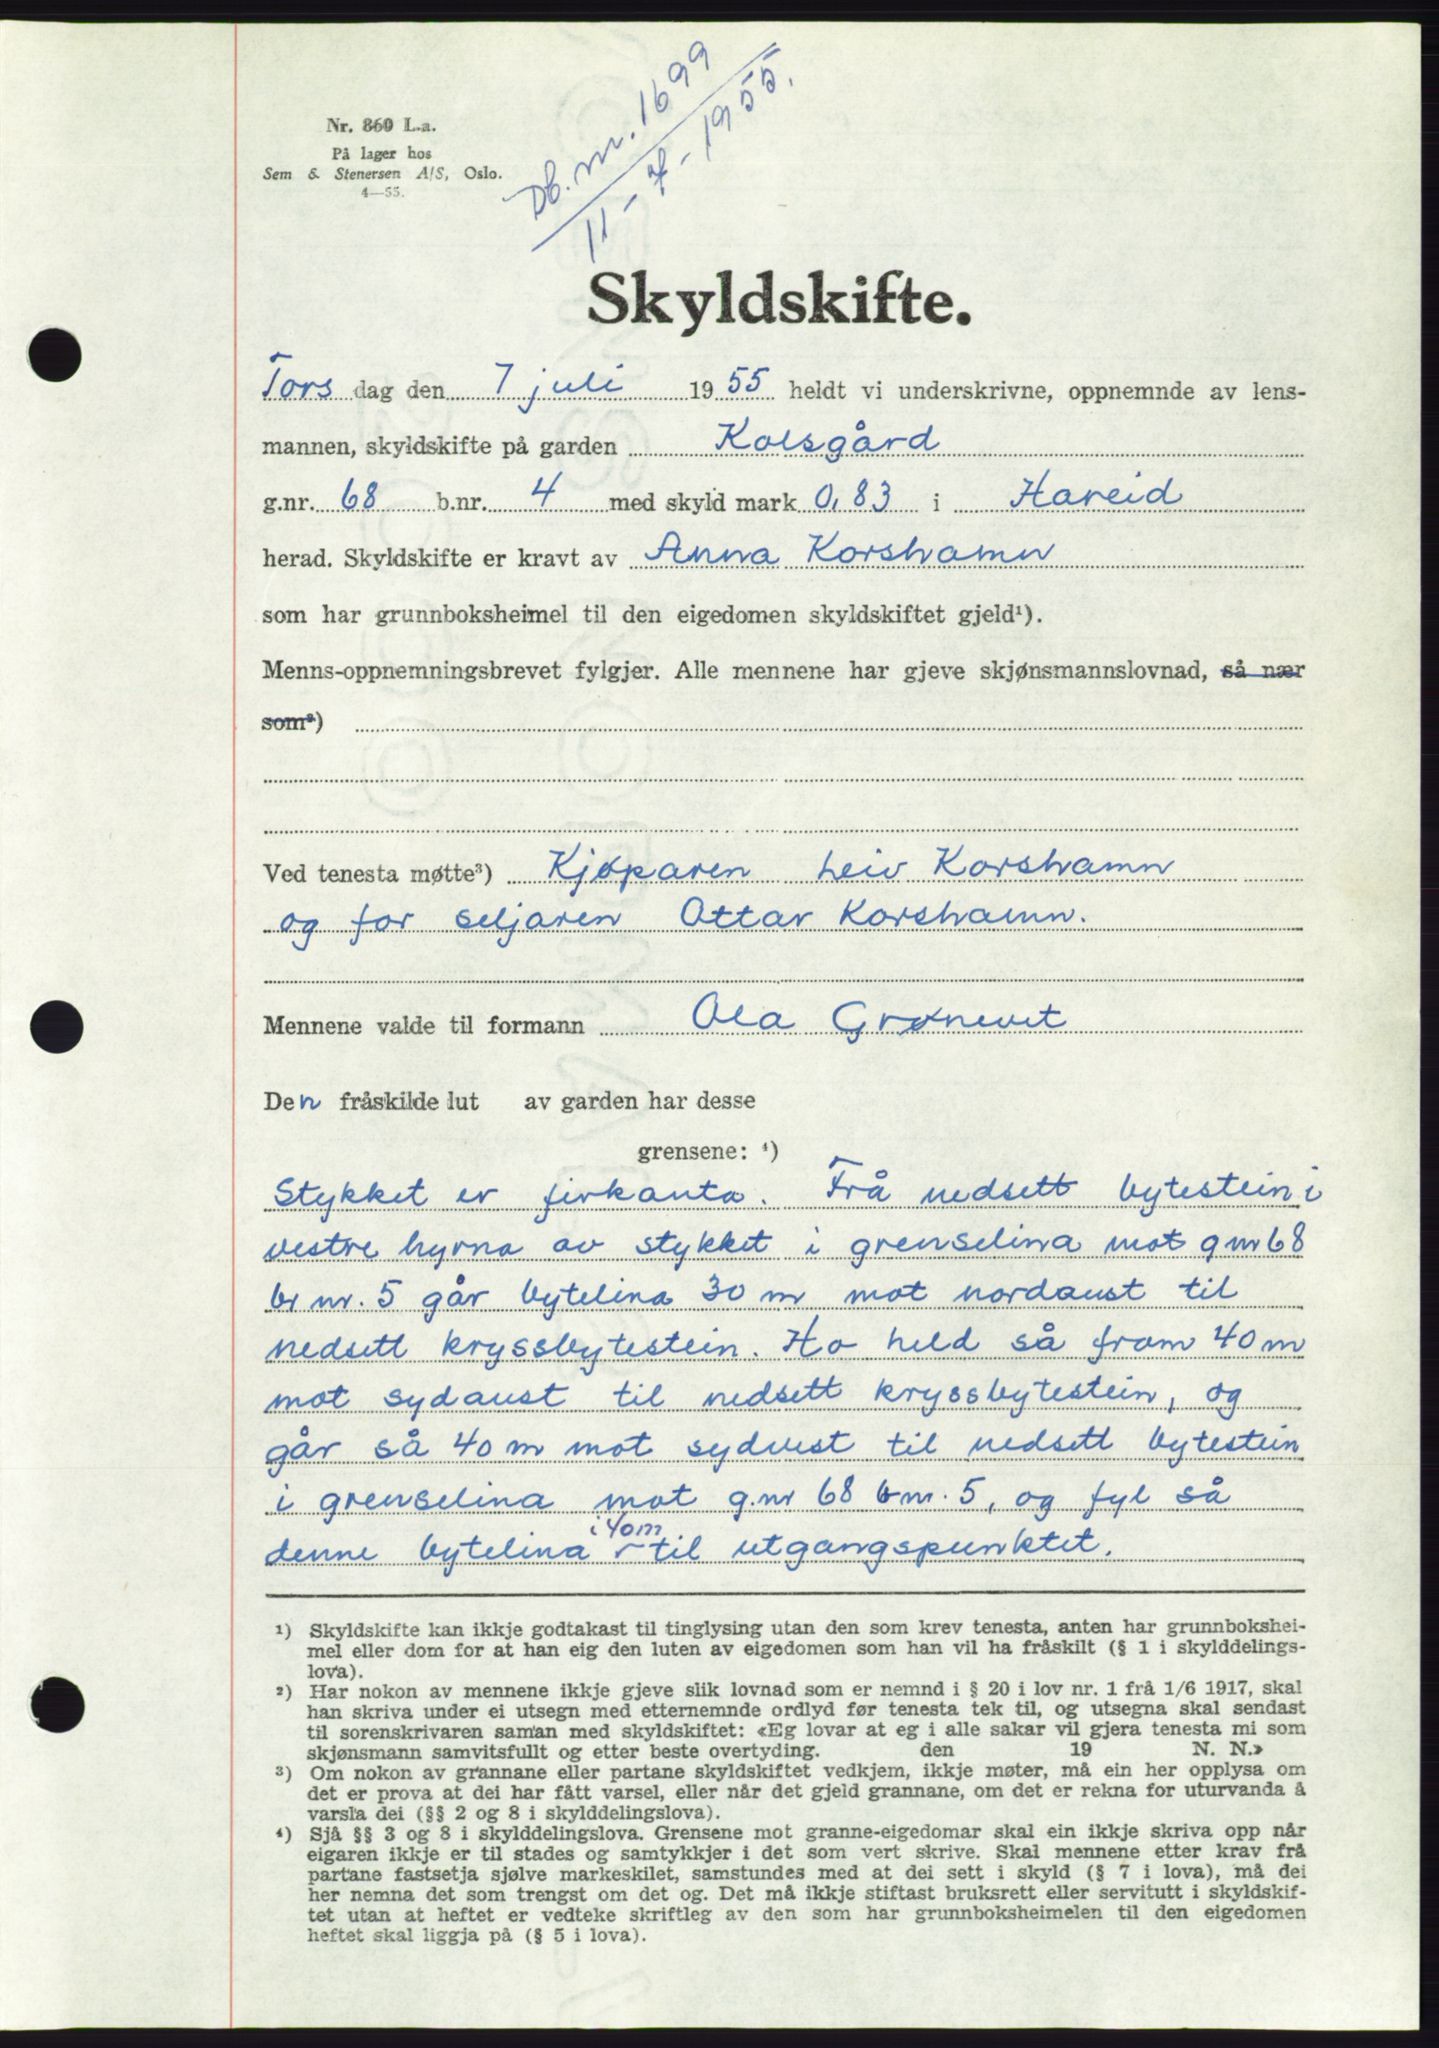 Db. nr. 1699
11-7-1955.
Nr. 860 L.a.
På lager hos
Sem & Stenersen A/S, Oslo.
4—55.
Skyldskifte.
Tors dag den 7 juli 1955 heldt vi underskrivne, oppnemnde av lens-
mannen, skyldskifte på garden Kolsgård
g.nr. 68 b.nr. 4 med skyld mark 0,83 i Hareid
herad. Skyldskifte er kravt av Anna Korshamn
som har grunnboksheimel til den eigedomen skyldskiftet gjeld¹).
Menns-oppnemningsbrevet fylgjer. Alle mennene har gjeve skjønsmannslovnad, så nær
som²)
Ved tenesta møtte³) Kjøparen Leiv Korshamn
og for seljaren Ottar Korshamn.
Mennene valde til formann Ola Grønevet
Den fråskilde lut av garden har desse
grensene: ⁴)
Stykket er firkanta. Frå nedsett bytestein i
vestre hyrna av stykket i grenselina mot gnr 68
br nr. 5 går bytelina 30 m mot nordaust til
nedsett kryssbytestein. Ho held så fram 40 m
mot sydaust til nedsett kryssbytestein, og
går så 40 m mot sydvest til nedsett bytestein
i grenselina mot g.nr 68 bnr. 5, og fyl så
denne bytelina i 40 m til utgangspunktet.
¹) Skyldskifte kan ikkje godtakast til tinglysing utan den som krev tenesta, anten har grunnbokshei-
mel eller dom for at han eig den luten av eigedomen som han vil ha fråskilt (§ 1 i skylddelings-
lova).
²) Har nokon av mennene ikkje gjeve slik lovnad som er nemnd i § 20 i lov nr. 1 frå 1/6 1917, skal
han skriva under ei utsegn med etternemnde ordlyd før tenesta tek til, og utsegna skal sendast
til sorenskrivaren saman med skyldskiftet: «Eg lovar at eg i alle sakar vil gjera tenesta mi som
skjønsmann samvitsfullt og etter beste overtyding. den 19 N. N.»
³) Om nokon av grannane eller partane skyldskiftet vedkjem, ikkje møter, må ein her opplysa om
det er prova at dei har fått varsel, eller når det gjeld grannane, om det er rekna for uturvanda å
varsla dei (§§ 2 og 8 i skylddelingslova).
⁴) Sjå §§ 3 og 8 i skylddelingslova. Grensene mot granne-eigedomar skal ein ikkje skriva opp når
eigaren ikkje er til stades og samtykkjer i det som vert skrive. Skal mennene etter krav frå
partane fastsetja sjølve markeskilet, samstundes med at dei sett i skyld (§ 7 i lova), må dei
her nemna det som trengst om det og. Det må ikkje stiftast bruksrett eller servitutt i skyldskif-
tet utan at heftet er vedteke skriftleg av den som har grunnboksheimelen til den eigedomen
heftet skal liggja på (§ 5 i lova).